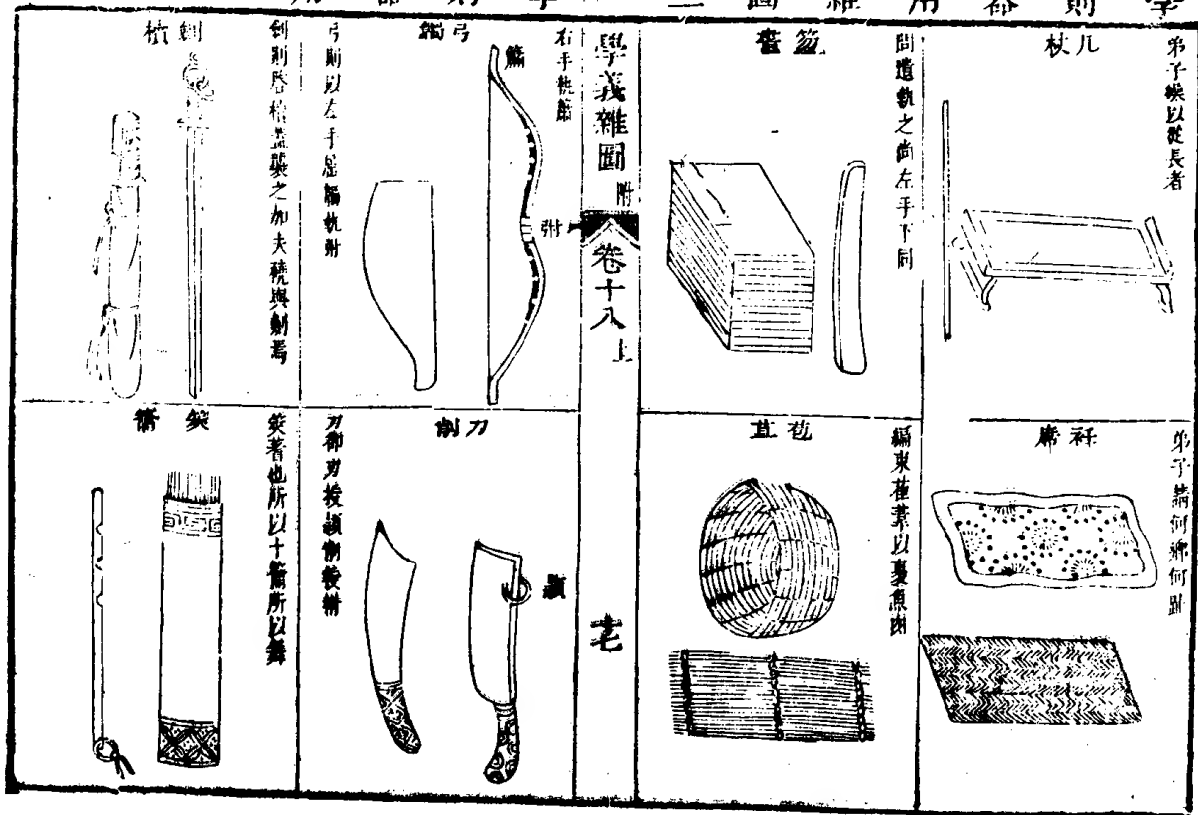 學則器用雜圖二
几杖
弟子操以從長者
衽席
弟子請何鄉何趾
笏書
問遺執之尚左手下同
苞苴
編束萑葦以裹魚肉
學義雜圖
附
卷十八上
弓韣
右手執簫
簫
弣
弓則以左手屈韣執弣
刀削
刀卻刃授穎削授拊
穎
劍櫝
劍則啓櫝蓋襲之加夫襓與劍焉
筴籥
筴蓍也所以卜籥所以舞